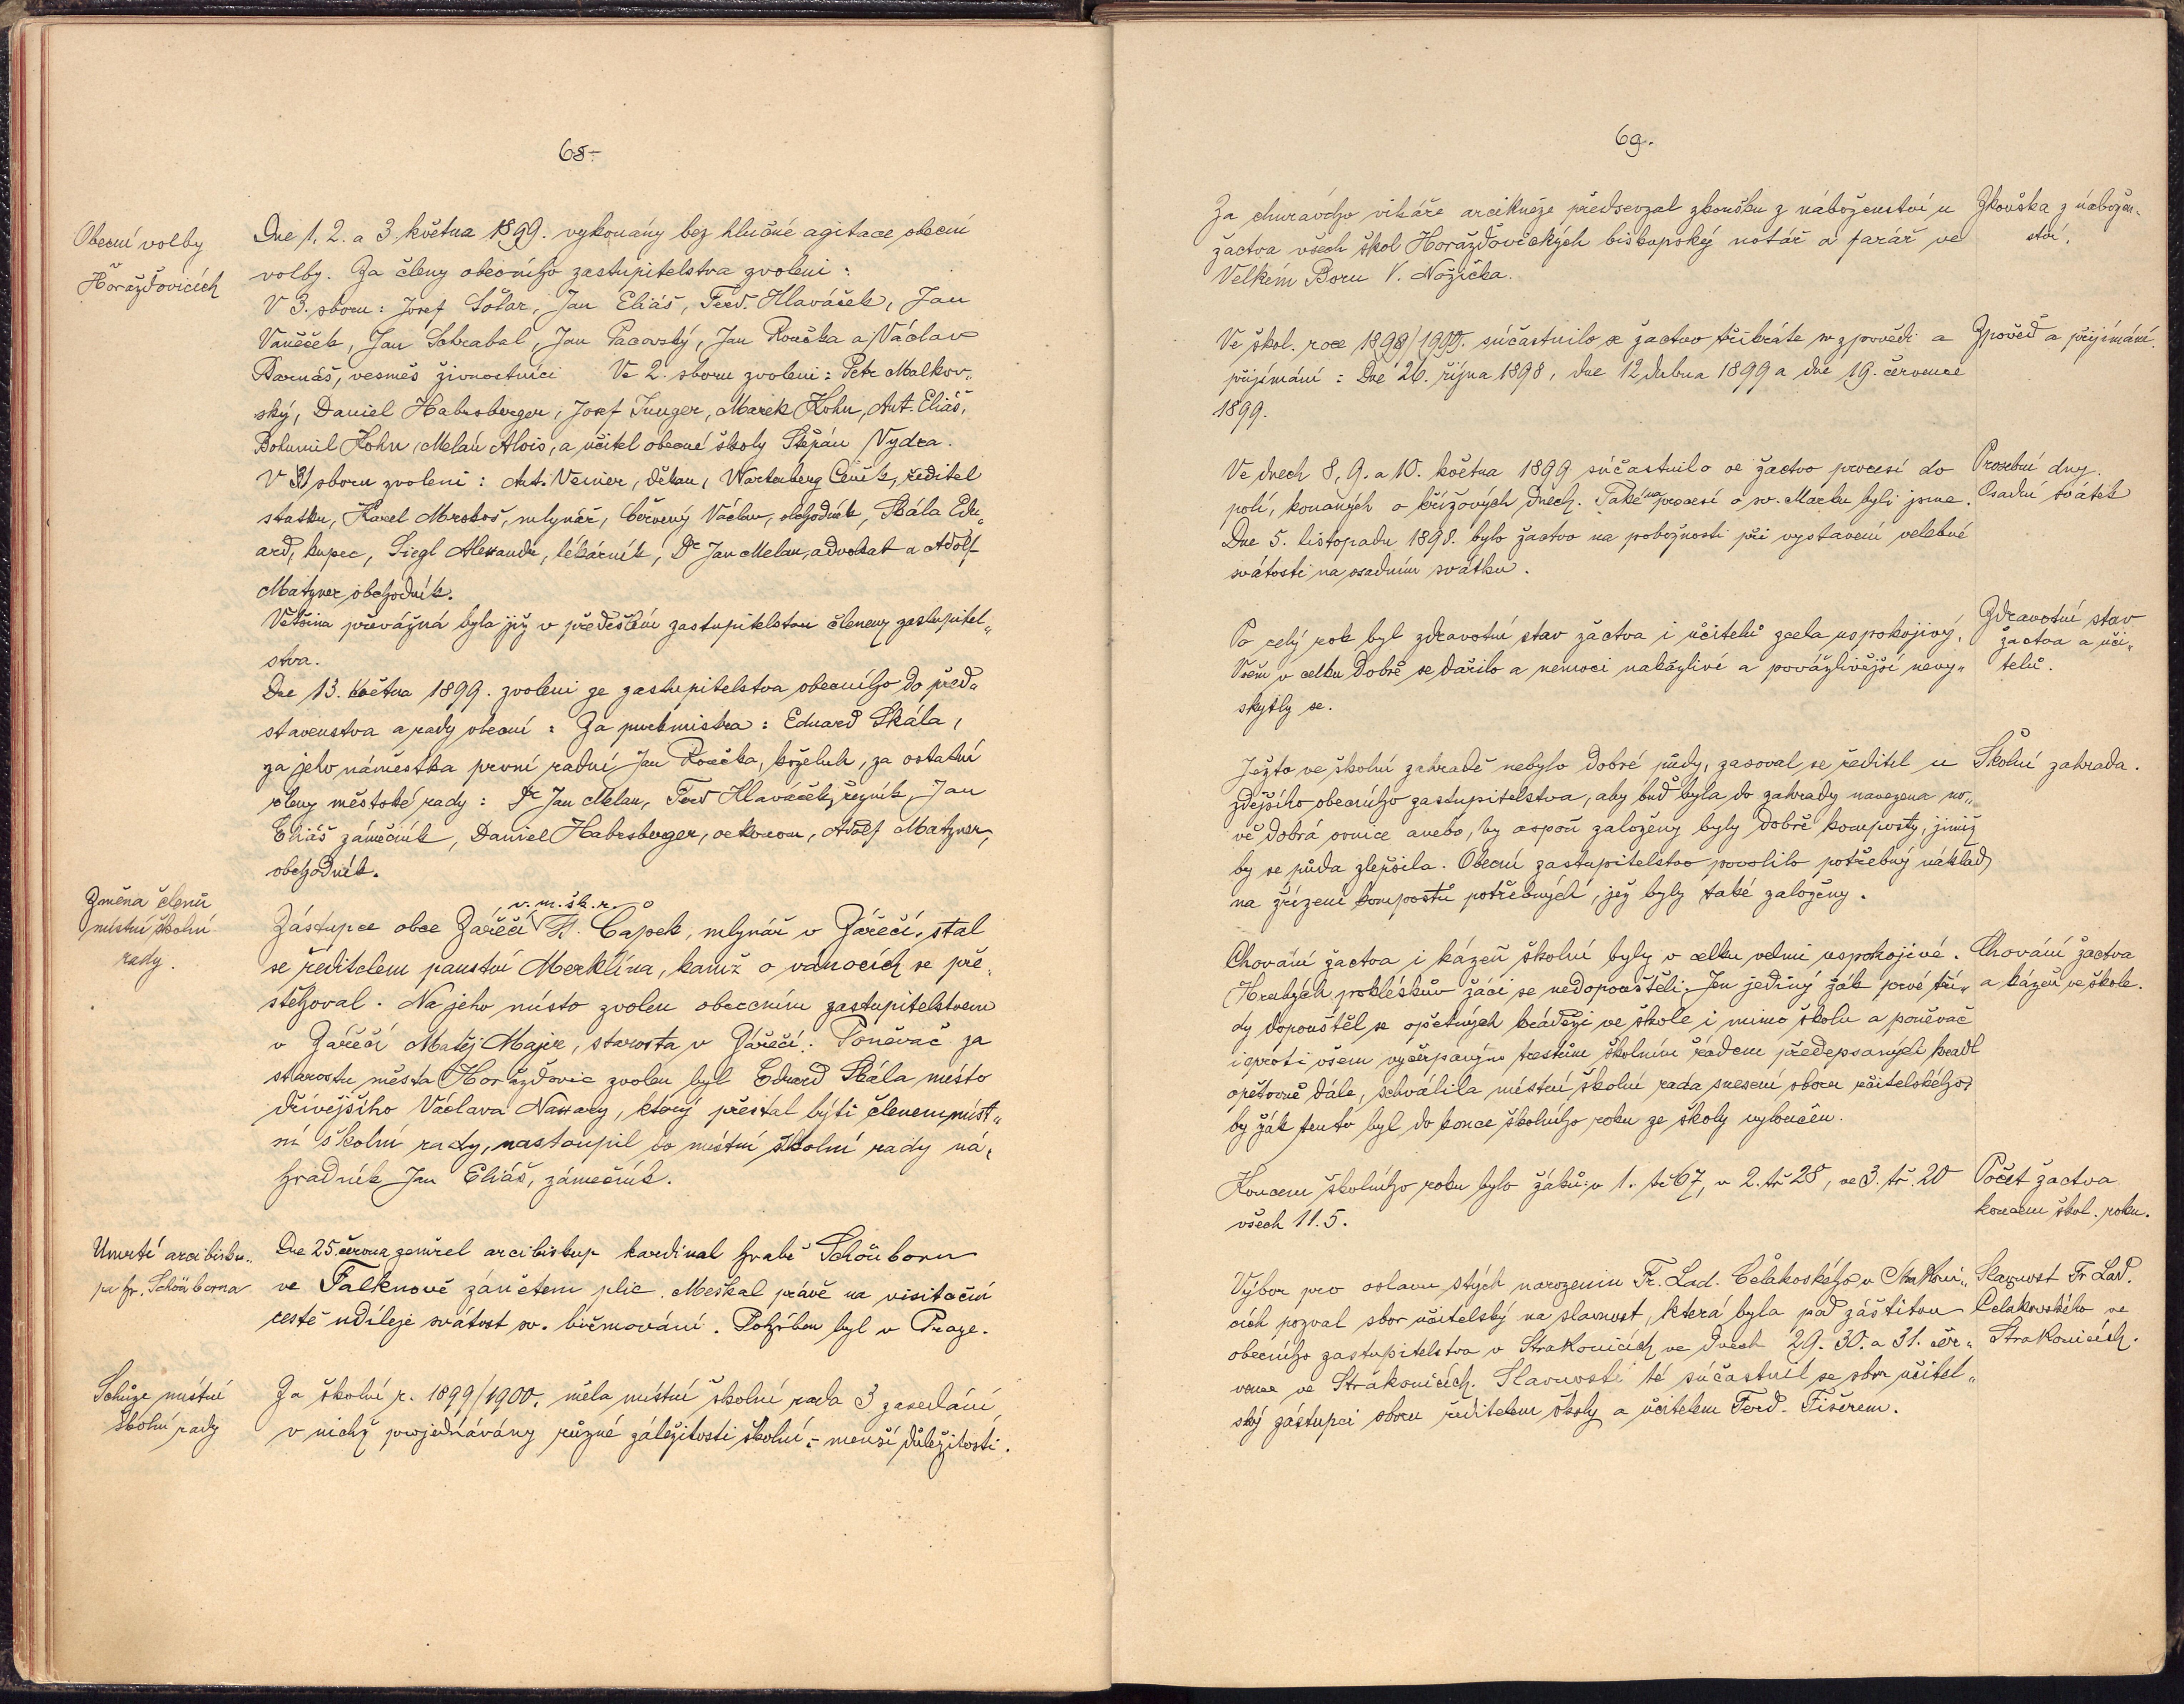 68.
Obecní volby
Horažďovicích
Dne 1. 2. a 3. května 1899. vykonány bez hlučné agitace obecní
volby. Za členy obecního zastupitelstva zvoleni:
V 3. sboru: Josef Šotar, Jan Eliáš, Ferd. Hlaváček, Jan
Vaněček, Jan Schrabal, Jan Pacovský, Jan Roučka a Václav
Barnáš, vesměs živnostníci Ve 2. sboru zvoleni: Petr Malkov„
ský, Daniel Habesberger, Josef Junger, Marek Kohn, Ant. Eliáš,
Bohumil Kohn, Melan Alois, a učitel obecné školy Štěpán Vydra.
V 1 sboru zvoleni: Ant. Veinier, děkan, Wartenberg Čeněk, ředitel
statku, Karel Mrskoš, mlynář, Červený Václav, obchodník, Skála Edu„
ard, kupec, Siegl Alexandr, lékárník, Dr Jan Melan, advokat a Adolf
Matzner obchodník.
Většina převážná byla již v předešlém zastupitelstvu členem zastupitel„
stva.
Dne 13. května 1899. zvoleni ze zastupitelstva obecního do před„
stavenstva a rady obecní: Za purkmistra: Eduard Skála,
za jeho náměstka první radní Jan Roučka, koželuh, za ostatní
členy městské rady: Dr Jan Melan, Ferd Hlaváček, řezník, Jan
Eliáš zámečník, Daniel Habesberger, oekonom, Adolf Matzner,
obchodník.
Změna členů
místní školní
rady.
v. m. šk. r.
Zástupce obce Zářečí Fr. Čapek, mlynář v Zářečí, stal
se ředitelem panství Merklína, kamž o vánocích se pře„
stěhoval. Na jeho místo zvolen obecním zastupitelstvem
v Zářečí Matěj Majer, starosta v Zářečí. Poněvač za
starostu města Horažďovic zvolen byl Eduard Skála místo
dřívějšího Václava Nassavy, který přestal býti členem míst„
ní školní rady, nastoupil do místní školní rady ná„
hradník Jan Eliáš, zámečník.
Úmrtí arcibisku„
pa hr. Schönborna
Dne 25. června zemřel arcibiskup kardinal hrabě Schönborn
ve Falknově zánětem plic. Meškal právě na visitační
cestě udíleje svátost sv. biřmování. Pohřben byl v Praze.
Schůze místní
školní rady
Za školní r. 1899/1900. měla místní školní rada 3 zasedání
v nichž projednávány různé záležitosti školní - menší důležitosti.
69.
Za churavého vikáře arcikněze předsevzal zkoušku z náboženství u
žactva všech škol Horažďovických biskupský notář a farář ve
Velkém Boru V. Nožička.
Zkouška z nábožen„
ství.
Ve škol. roce 1898/1999. súčastnilo se žactvo třikráte sv zpovědi a
přijímání: Dne 26. října 1898, dne 12 dubna 1899 a dne 19. července
1899.
Zpověď a přijímání.
Ve dnech 8, 9. a 10. května 1899 súčastnilo se žactvo procesí do
polí, konaných o křížových dnech. Také na procesí o sv. Marku byli jsme.
Dne 5. listopadu 1898. bylo žactvo na pobožnosti při vystavení velebné
svátosti na osadním svátku.
Prosební dny.
Osadní svátek
Po celý rok byl zdravotní stav žáctva i učitelů zcela uspokojivý.
Všem v celku dobře se dařilo a nemoci nakažlivé a povážlivější nevy„
skytly se.
Zdravotní stav
žactva a uči„
telů.
Ježto ve školní zahradě nebylo dobré půdy, zasoval se ředitel u
zdejšího obecního zastupitelstva, aby buď byla do zahrady navezena no„
vě dobrá ornice anebo, by aspoň založeny byly dobré komposty, jimiž
by se půda zlepšila. Obecní zastupitelstvo povolilo potřebný náklad
na zřízení kompostů potřebných, jež byly také založeny.
Školní zahrada.
Chování žactva i kázeň školní byly v celku velmi uspokojivé.
Hrubých poklésků žáci se nedopouštěli. Jen jediný žák prvé tří„
dy dopouštěl se opětných krádeží ve škole i mimo školu a poněvač
i proti všem vyčerpaným trestům školním řádem předepsaných kradl
opětovně dále, schválila místní školní rada snesení sboru učitelského,
by žák tento byl do konce školního roku ze školy vyloučen.
Chování žactva
a kázeň ve škole.
Koncem školního roku bylo žáků: v 1. tř 67, v 2. tř 28, ve 3. tř. 20
všech 11.5.
Počet žactva
koncem škol. roku.
Výbor pro oslavu stých narozenin Fr. Lad. Čelakoského v Strakoni„
cích pozval sbor učitelský na slavnost, která byla pod záštitou
obecního zastupitelstva v Strakonicích ve dnech 29. 30. a 31. čer„
vence ve Strakonicích. Slavnosti té súčastnil se sbor učitel„
ský zástupci sboru ředitelem školy a učitelem Ferd. Fišerem.
Slavnost Fr Lad.
Čelakovského ve
Strakonicích.